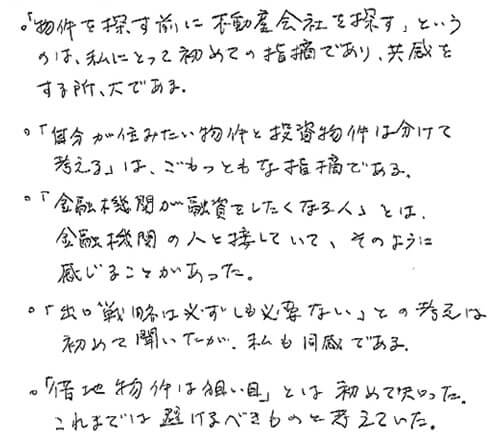 。「物件を探す前に不動産会社を探す」という
のは、私にとって初めての指摘であり、共感を
する所、大である。
。「自分が住みたい物件と投資物件は分けて
考える」は、ごもっともな指摘である。
。「金融機関が融資をしたくなる人」とは、
金融機関の人と接していて、そのように
感じることがあった。
。「出口戦略は必ずしも必要ない」との考えは
初めて聞いたが、私も同感である。
。「借地物件は狙い目」とは初めて知った。
これまでは避けるべきものと考えていた。